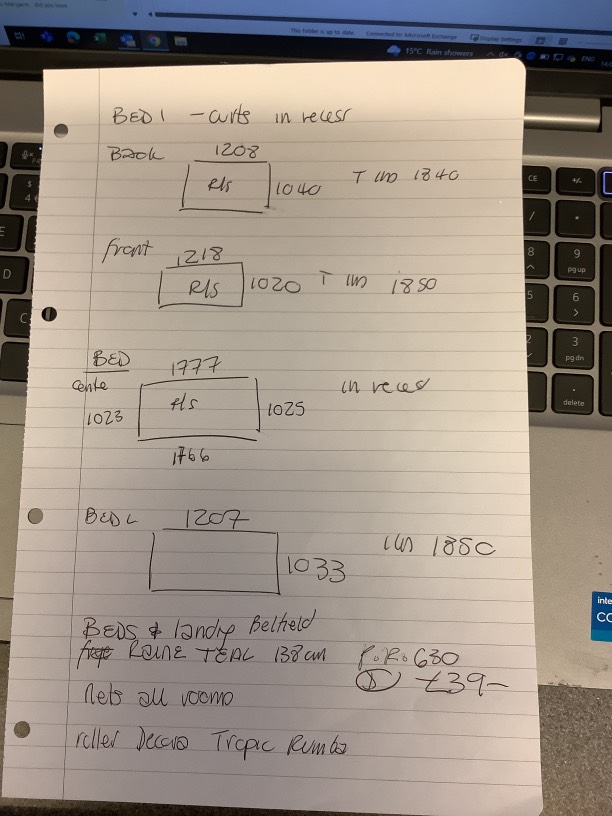 This folder is up to date. Connected to: Microsoft Exchange Display Settings
15°C Rain showers
ENG
BED 1 - curts in recess
Back 1208
R/s 1040 T
1840
front 1218
R/s 1020 T
1850
BED 1777
cente
1023 R/s 1025 in reces
1766
BED L 1207
1033
1850
BEDS & landg Belfield
RAINE TEAL 138cm P.R. 630
£39-
Nets all rooms
roller Decora Tropic Rumba
CE
+/-
/
*
8
9
pg up
5
6
3
pg dn
.
delete
4
E
D
C
inte